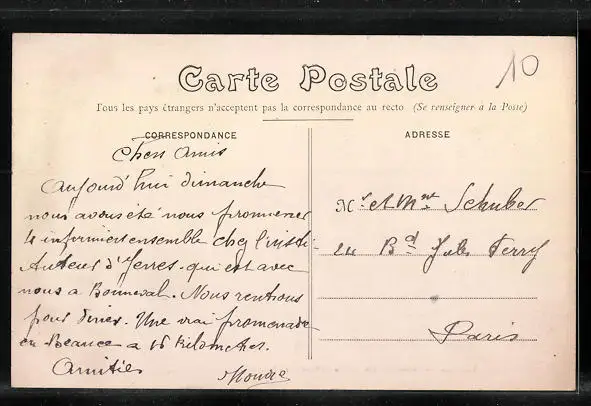 10
Carte Postale
Tous les pays étrangers n'acceptent pas la correspondance au recto (Se renseigner a la Poste)
CORRESPONDANCE
ADRESSE
Chers amis
Aujourd'hui dimanche
nous avons été nous promener
4 infirmiers ensemble chez l'insti-
tuteur d'Yerres. qui est avec
nous a Bonneval. Nous rentrons
pour diner. Une vrai promenade
en Beauce a 16 kilometres.
Amitiés
Mr et Mme Schuber
24 Bd Jules Ferry
Paris